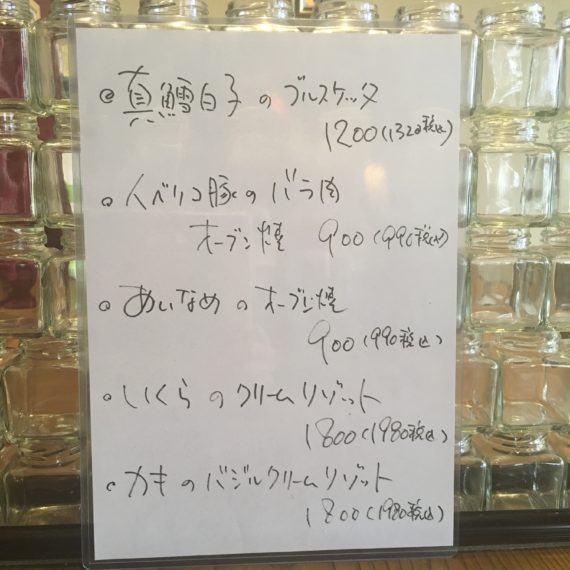 真鱈白子のブルスケッタ
1200(1320税込)
イベリコ豚のバラ肉
オーブン焼 900(990税込)
あいなめのオーブン焼
900(990税込)
いくらのクリームリゾット
1800(1980税込)
カキのバジルクリームリゾット
1800(1980税込)